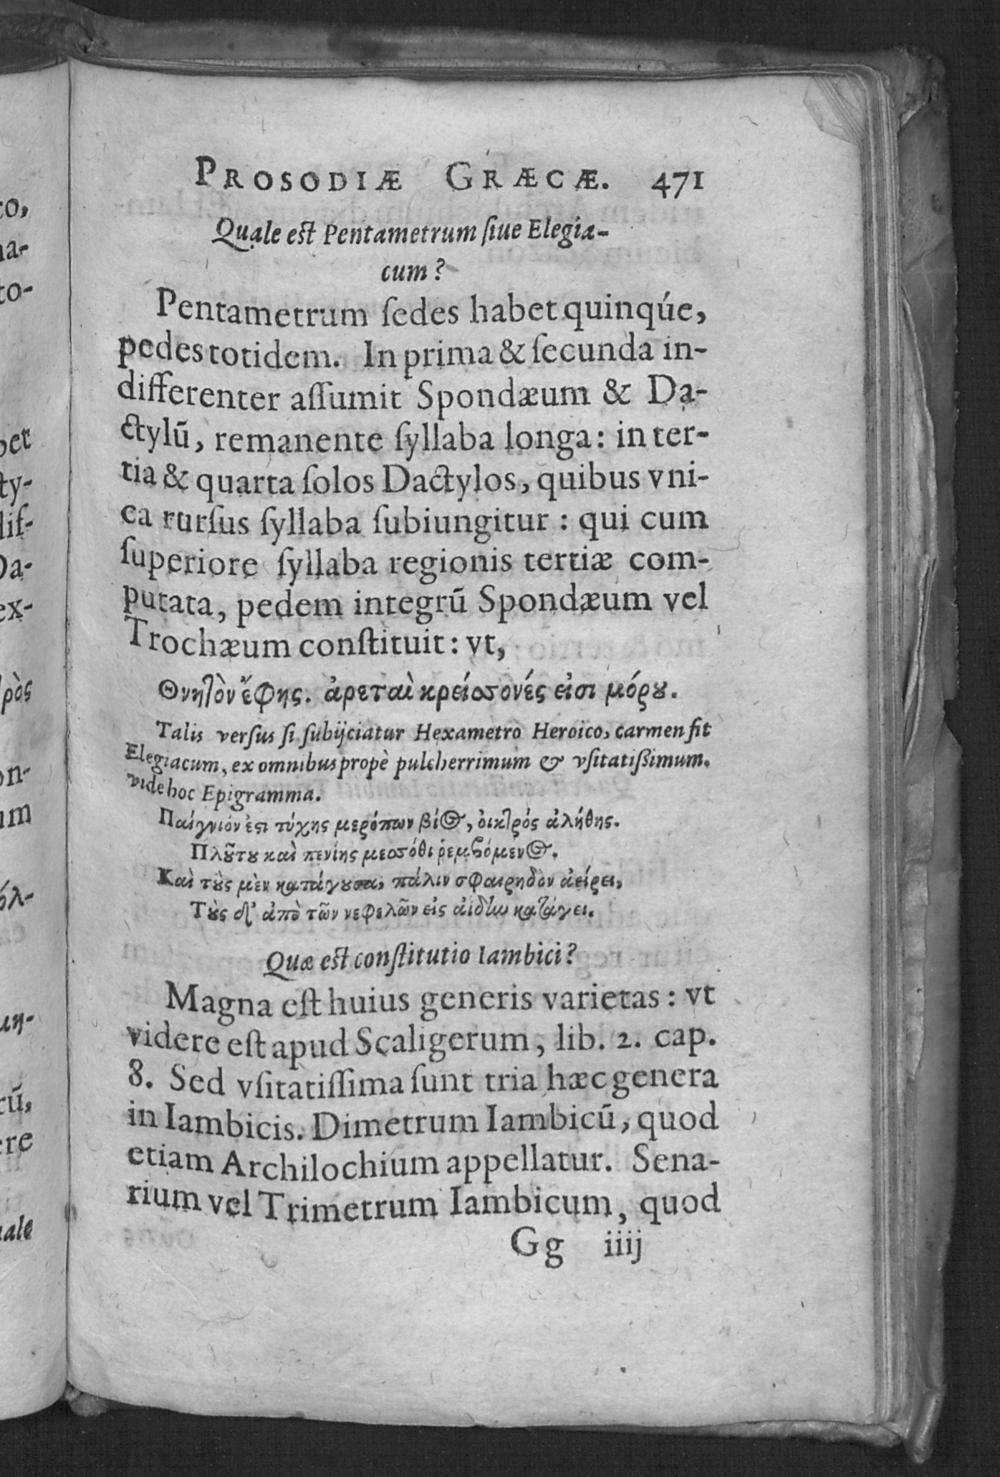 PROSODIÆ GRÆCÆ. 471
Quale est Pentametrum siue Elegia-
cum?
Pentametrum sedes habet quinq́ue,
pedes totidem. In prima & secunda in-
differenter assumit Spondæum & Da-
ctylū, remanente syllaba longa: in ter-
tia & quarta solos Dactylos, quibus vni-
ca rursus syllaba subiungitur: qui cum
superiore syllaba regionis tertiæ com-
putata, pedem integrū Spondæum vel
Trochæum constituit: vt,
Θνητὸν ἔφης. ἀρεταὶ κρείστονές εἰσι μόρου.
Talis versus si subijciatur Hexametro Heroico, carmen fit
Elegiacum, ex omnibus propè pulcherrimum & vsitatissimum.
vide hoc Epigramma.
Παίγνιόν ἐστι τύχης μερόπων βίος, οἰκτρός ἀλήθης.
Πλούτου καὶ πενίης μεστόθι ῥεμβόμενος.
Καὶ τοὺς μὲν κατάγουσα, πάλιν σφαιρηδὸν ἀείρει,
Τοὺς δ' ἀπὸ τῶν νεφελῶν εἰς ἀΐδην κατάγει.
Quæ est constitutio Iambici?
Magna est huius generis varietas: vt
videre est apud Scaligerum, lib. 2. cap.
8. Sed vsitatissima sunt tria hæc genera
in Iambicis. Dimetrum Iambicū, quod
etiam Archilochium appellatur. Sena-
rium vel Trimetrum Iambicum, quod
Gg iiij